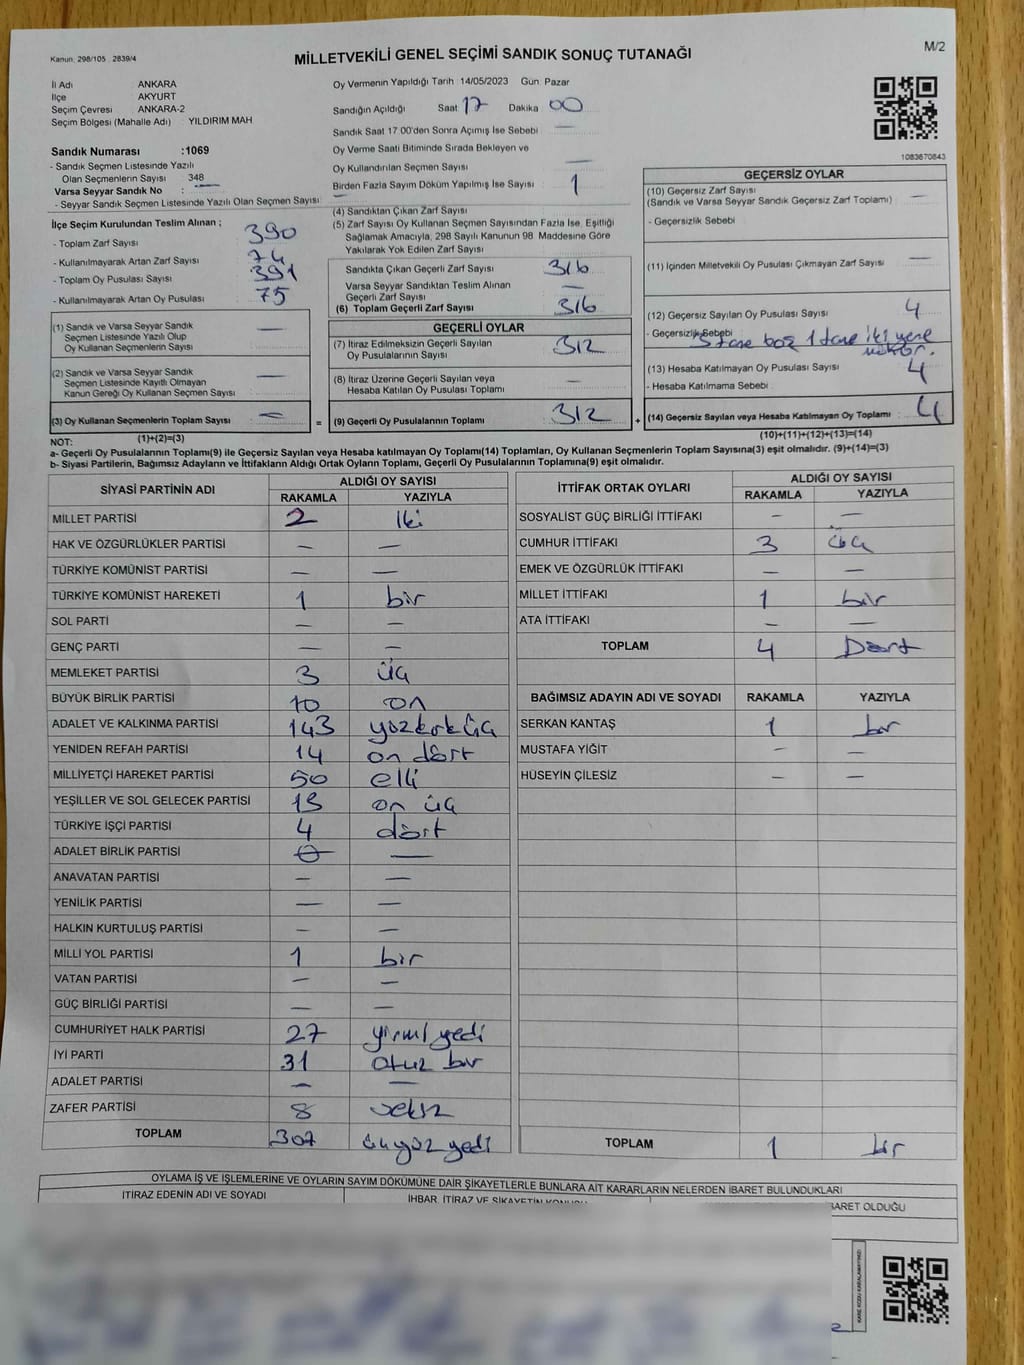 Kanun, 298/105, 2839/4
MİLLETVEKİLİ GENEL SEÇİMİ SANDIK SONUÇ TUTANAĞI
M/2
İl Adı ANKARA
İlçe AKYURT
Seçim Çevresi ANKARA-2
Seçim Bölgesi (Mahalle Adı) YILDIRIM MAH
Sandık Numarası :1069
- Sandık Seçmen Listesinde Yazılı
Olan Seçmenlerin Sayısı 348
Varsa Seyyar Sandık No : —
- Seyyar Sandık Seçmen Listesinde Yazılı Olan Seçmen Sayısı —
İlçe Seçim Kurulundan Teslim Alınan ;
- Toplam Zarf Sayısı 390
- Kullanılmayarak Artan Zarf Sayısı 74
- Toplam Oy Pusulası Sayısı 391
- Kullanılmayarak Artan Oy Pusulası 75
(1) Sandık ve Varsa Seyyar Sandık
Seçmen Listesinde Yazılı Olup
Oy Kullanan Seçmenlerin Sayısı —
(2) Sandık ve Varsa Seyyar Sandık
Seçmen Listesinde Kayıtlı Olmayan
Kanun Gereği Oy Kullanan Seçmen Sayısı —
(3) Oy Kullanan Seçmenlerin Toplam Sayısı —
(1)+(2)=(3)
Oy Vermenin Yapıldığı Tarih 14/05/2023 Gün Pazar
Sandığın Açıldığı Saat 17 Dakika 00
Sandık Saat 17 00'den Sonra Açımış İse Sebebi —
Oy Verme Saati Bitiminde Sırada Bekleyen ve
Oy Kullandırılan Seçmen Sayısı —
Birden Fazla Sayım Döküm Yapılmış İse Sayısı 1
(4) Sandıktan Çıkan Zarf Sayısı
(5) Zarf Sayısı Oy Kullanan Seçmen Sayısından Fazla İse, Eşitliği
Sağlamak Amacıyla, 298 Sayılı Kanunun 98 Maddesine Göre
Yakılarak Yok Edilen Zarf Sayısı
Sandıkta Çıkan Geçerli Zarf Sayısı 316
Varsa Seyyar Sandıktan Teslim Alınan
Geçerli Zarf Sayısı —
(6) Toplam Geçerli Zarf Sayısı 316
GEÇERLİ OYLAR
(7) İtiraz Edilmeksizin Geçerli Sayılan
Oy Pusulalarının Sayısı 312
(8) İtiraz Üzerine Geçerli Sayılan veya
Hesaba Katılan Oy Pusulası Toplamı —
= (9) Geçerli Oy Pusulalarının Toplamı 312 +
1083670843
GEÇERSİZ OYLAR
(10) Geçersiz Zarf Sayısı
(Sandık ve Varsa Seyyar Sandık Geçersiz Zarf Toplamı) —
- Geçersizlik Sebebi
(11) İçinden Milletvekili Oy Pusulası Çıkmayan Zarf Sayısı —
(12) Geçersiz Sayılan Oy Pusulası Sayısı 4
- Geçersizlik Sebebi 3 tane boş 1 tane iki yere
(13) Hesaba Katılmayan Oy Pusulası Sayısı 4
- Hesaba Katılmama Sebebi
(14) Geçersiz Sayılan veya Hesaba Katılmayan Oy Toplamı : 4
(10)+(11)+(12)+(13)=(14)
NOT:
a- Geçerli Oy Pusulalarının Toplamı(9) ile Geçersiz Sayılan veya Hesaba katılmayan Oy Toplamı(14) Toplamları, Oy Kullanan Seçmenlerin Toplam Sayısına(3) eşit olmalıdır. (9)+(14)=(3)
b- Siyasi Partilerin, Bağımsız Adayların ve İttifakların Aldığı Ortak Oyların Toplamı, Geçerli Oy Pusulalarının Toplamına(9) eşit olmalıdır.
SİYASİ PARTİNİN ADI ALDIĞI OY SAYISI
RAKAMLA YAZIYLA
MİLLET PARTİSİ 2 iki
HAK VE ÖZGÜRLÜKLER PARTİSİ — —
TÜRKİYE KOMÜNİST PARTİSİ — —
TÜRKİYE KOMÜNİST HAREKETİ 1 bir
SOL PARTİ — —
GENÇ PARTİ — —
MEMLEKET PARTİSİ 3 üç
BÜYÜK BİRLİK PARTİSİ 10 on
ADALET VE KALKINMA PARTİSİ 143 yüzkırk üç
YENİDEN REFAH PARTİSİ 14 on dört
MİLLİYETÇİ HAREKET PARTİSİ 50 elli
YEŞİLLER VE SOL GELECEK PARTİSİ 13 on üç
TÜRKİYE İŞÇİ PARTİSİ 4 dört
ADALET BİRLİK PARTİSİ 0 —
ANAVATAN PARTİSİ — —
YENİLİK PARTİSİ — —
HALKIN KURTULUŞ PARTİSİ — —
MİLLİ YOL PARTİSİ 1 bir
VATAN PARTİSİ — —
GÜÇ BİRLİĞİ PARTİSİ — —
CUMHURİYET HALK PARTİSİ 27 yirmi yedi
İYİ PARTİ 31 otuz bir
ADALET PARTİSİ — —
ZAFER PARTİSİ 8 sekiz
TOPLAM 307 üçyüz yedi
İTTİFAK ORTAK OYLARI ALDIĞI OY SAYISI
RAKAMLA YAZIYLA
SOSYALİST GÜÇ BİRLİĞİ İTTİFAKI — —
CUMHUR İTTİFAKI 3 üç
EMEK VE ÖZGÜRLÜK İTTİFAKI — —
MİLLET İTTİFAKI 1 bir
ATA İTTİFAKI — —
TOPLAM 4 Dört
BAĞIMSIZ ADAYIN ADI VE SOYADI RAKAMLA YAZIYLA
SERKAN KANTAŞ 1 bir
MUSTAFA YİĞİT — —
HÜSEYİN ÇİLESİZ — —
TOPLAM 1 bir
OYLAMA İŞ VE İŞLEMLERİNE VE OYLARIN SAYIM DÖKÜMÜNE DAİR ŞİKAYETLERLE BUNLARA AİT KARARLARIN NELERDEN İBARET BULUNDUKLARI
İTİRAZ EDENİN ADI VE SOYADI İHBAR, İTİRAZ VE ŞİKAYETİN KONUSU BARET OLDUĞU